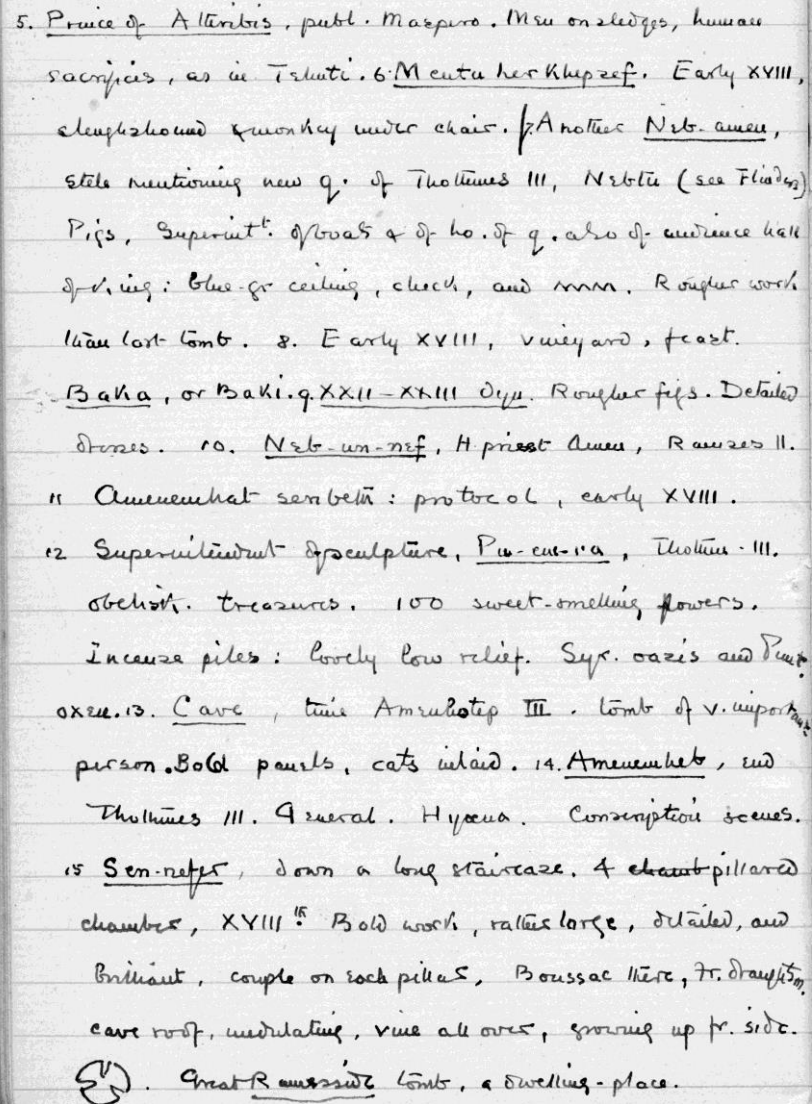 5. Prince of Alteribis, publ. Maspero. Men on sledges, human
sacrifices, as in Tehuti. 6. Mentu her Khepsef. Early XVIII,
sleughhound & monkey under chair. 7. Another Neb-amen,
stele mentioning new q. of Thothmes III, Nebtu (see Flinders)
Pigs, Superintt. of boats & of ho. of q. also of audience hall
of king: blue-gr ceiling, check, and . Rougher work
than last tomb. 8. Early XVIII, vineyard, feast.
Baka, or Baki. 9. XXII-XXIII Dyn. Rougher figs. Detailed
dresses. 10. Neb-un-nef, H. priest Amen, Ramses II.
11 Amenemhat : protocol, early XVIII.
12 Superintendent of sculpture, , Thothm. III.
obelisk. treasures. 100 sweet-smelling flowers.
Incense piles: lovely low relief. Syr. oasis and Punt.
oxen. 13. Cave, time Amenhotep III. tomb of v. important
person. Bold panels, cats inlaid. 14. Amenemheb, end
Thothmes III. General. Hyæna. Conscription scenes.
15 Sen-nefer, down a long staircase. 4 chamb pillared
chamber, XVIIIth. Bold work, rather large, detailed, and
brilliant, couple on each pillar, Boussac there, Fr. draughtsm.
cave roof, undulating, vine all over, growing up fr. side.
Great Ramesside tomb, a dwelling-place.